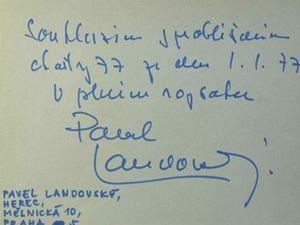 Souhlasím s prohlášením
charty 77 ze dne 1.1.77
v plném rozsahu
Pavel
Landovský
PAVEL LANDOVSKÝ,
HEREC,
MĚLNICKÁ 10,
PRAHA 5